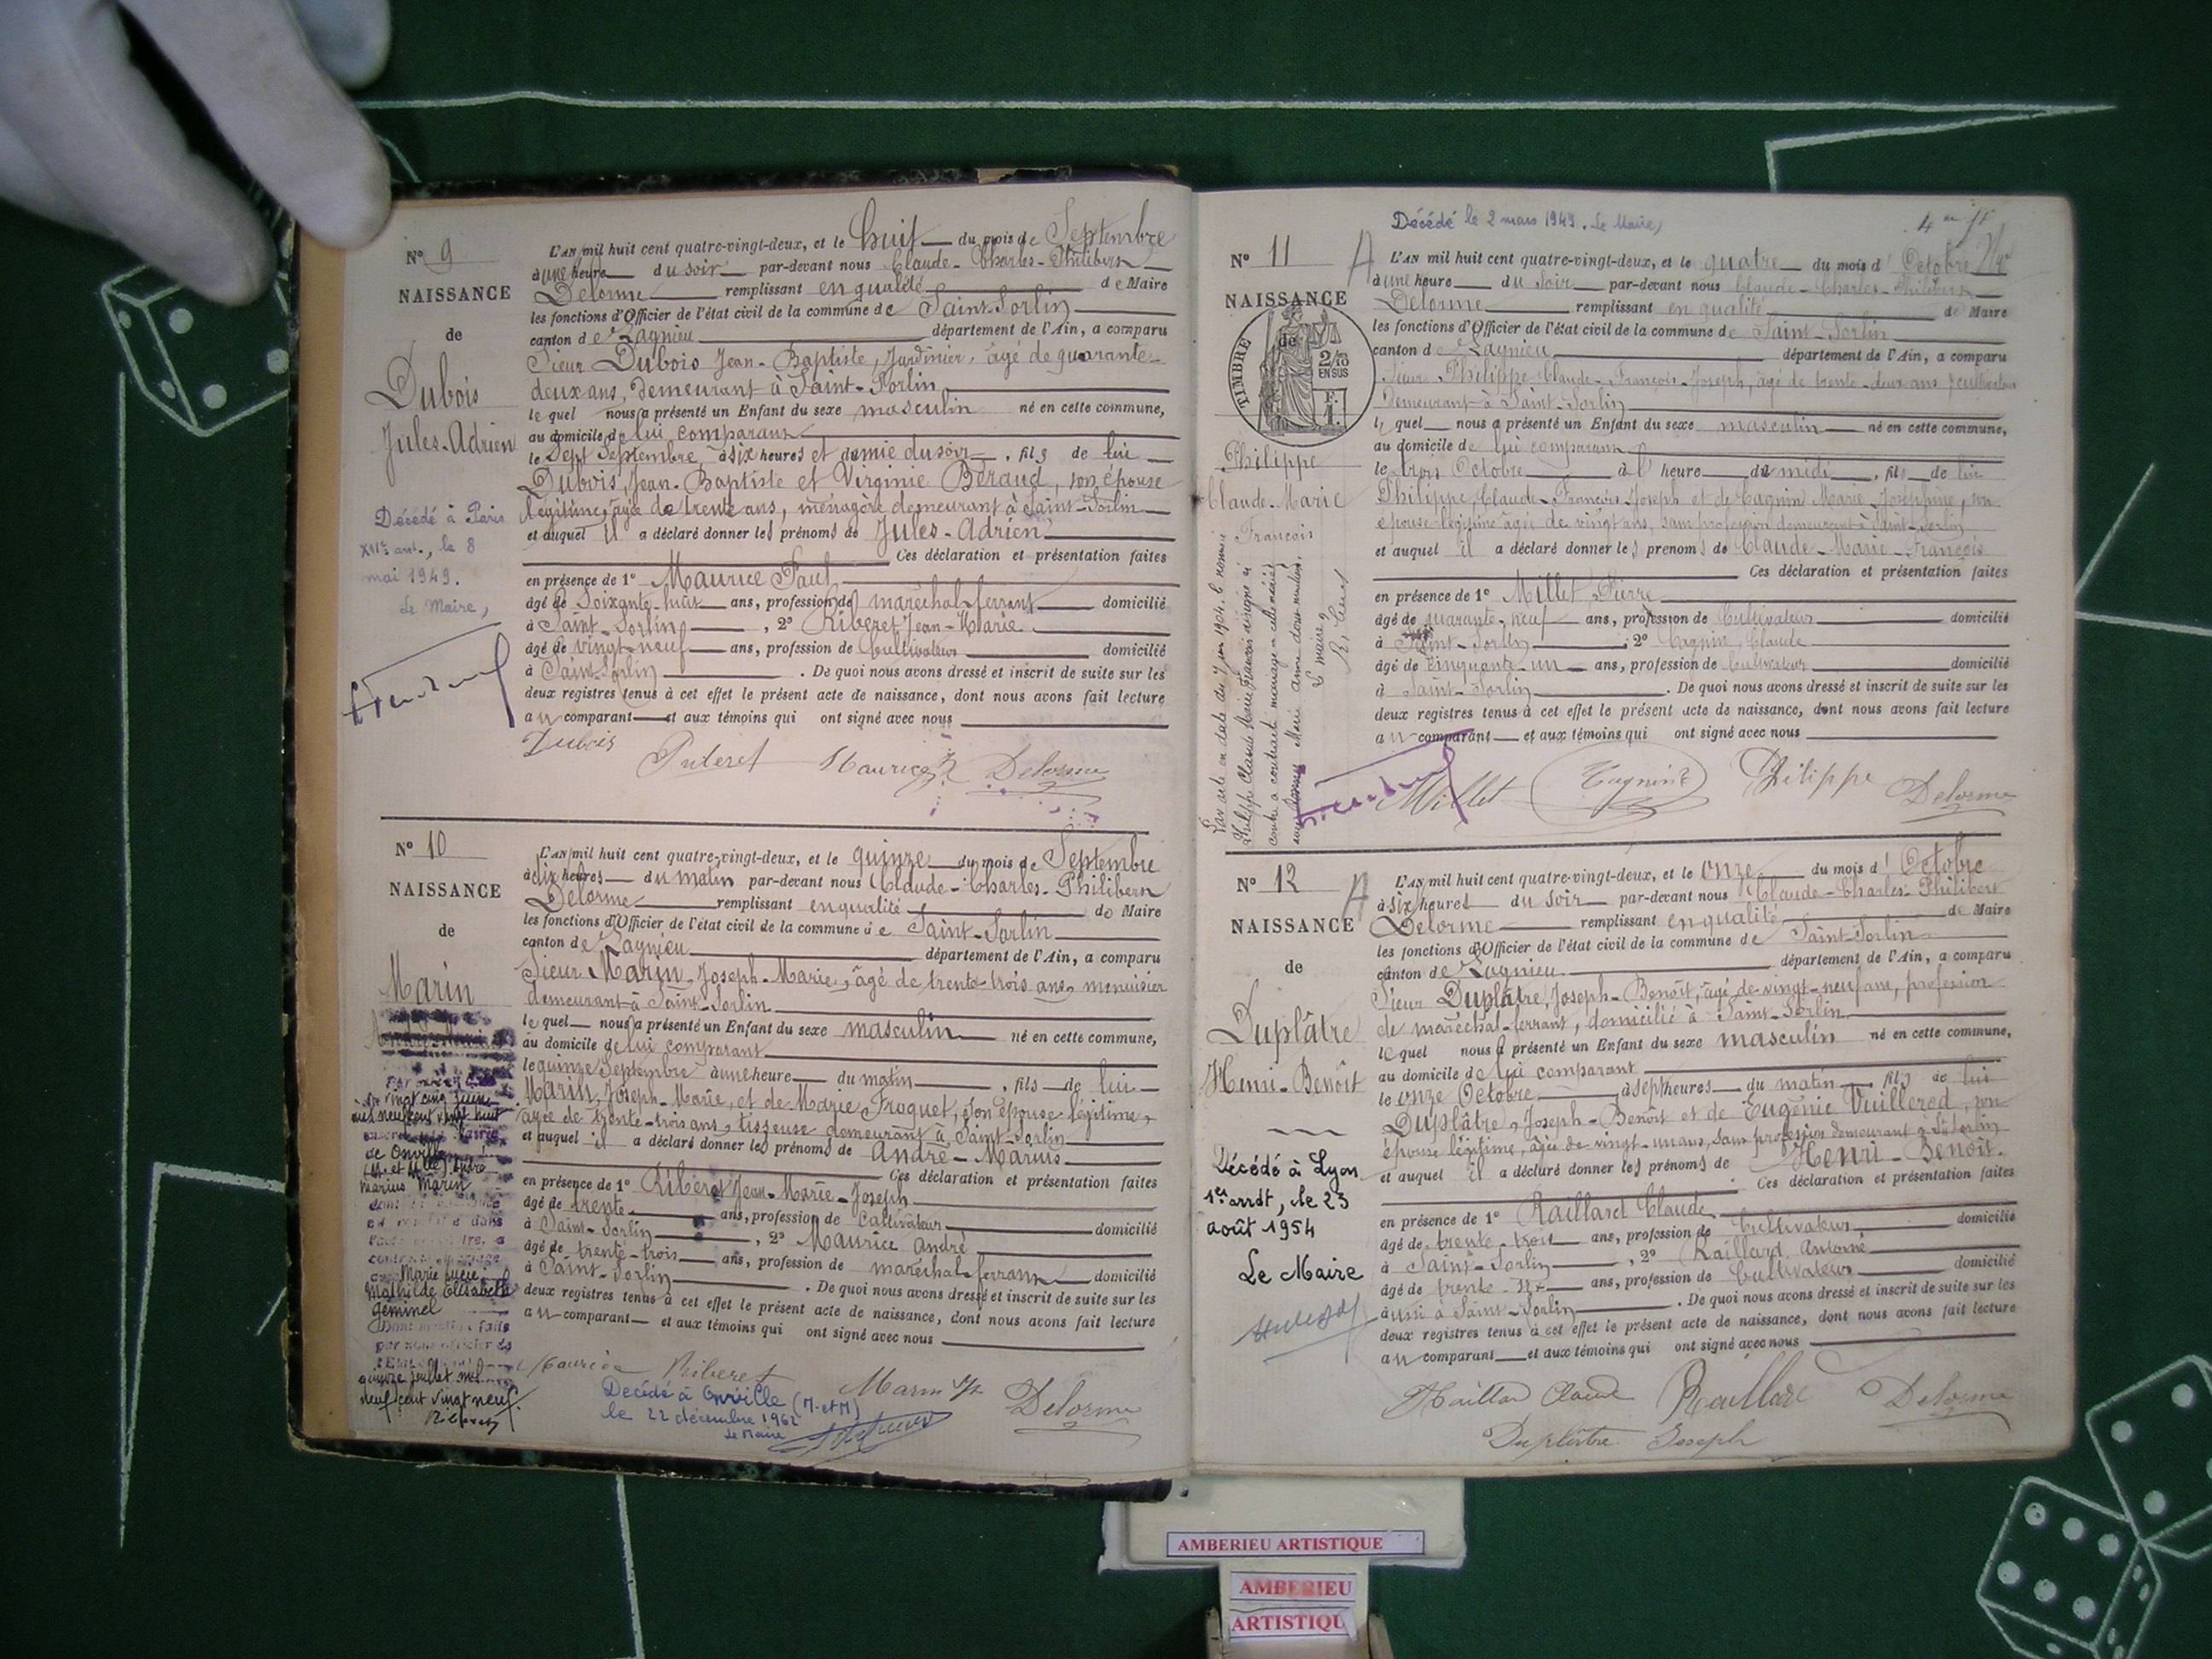 Nº 9
NAISSANCE
de
Dubois
Jules-Adrien
Décédé à Paris
arrt., le 8
mai 1949.
Le Maire,
L'AN mil huit cent quatre-vingt-deux, et le huit du mois de Septembre
à une heure du soir par-devant nous Claude-Charles-Philibert
Delorme remplissant en qualité de Maire
les fonctions d'Officier de l'état civil de la commune de Saint-Sorlin
canton de Lagnieu département de l'Ain, a comparu
Sieur Dubois Jean-Baptiste, Jardinier, âgé de quarante-
deux ans, demeurant à Saint-Sorlin
lequel nous a présenté un Enfant du sexe masculin né en cette commune,
au domicile de lui comparant
le Sept Septembre à six heures et demie du soir, fils de lui
Dubois, Jean-Baptiste et Virginie Béraud, son épouse
légitime, âgée de trente ans, ménagère demeurant à Saint-Sorlin
et auquel il a déclaré donner les prénoms de Jules-Adrien
Ces déclaration et présentation faites
en présence de 1º Maurice Paul
âgé de Soixante-huit ans, profession de maréchal-ferrant domicilié
à Saint-Sorlin, 2º Riberet Jean-Marie
âgé de vingt-neuf ans, profession de Cultivateur domicilié
à Saint-Sorlin. De quoi nous avons dressé et inscrit de suite sur les
deux registres tenus à cet effet le présent acte de naissance, dont nous avons fait lecture
au comparant et aux témoins qui ont signé avec nous
Dubois Maurice Delorme
Nº 10
NAISSANCE
de
Marin
vingt cinq juin
mil neuf cent vingt huit
de Onville
(M. et Mlle) André
Marius Marin
Marie Lucie
Mathilde Elisabeth
Géminel
quinze juillet mil
neuf cent vingt neuf.
L'AN mil huit cent quatre-vingt-deux, et le quinze du mois de Septembre
à dix heures du matin par-devant nous Claude-Charles-Philibert
Delorme remplissant en qualité de Maire
les fonctions d'Officier de l'état civil de la commune de Saint-Sorlin
canton de Lagnieu département de l'Ain, a comparu
Sieur Marin, Joseph-Marie, âgé de trente-trois ans, menuisier
demeurant à Saint-Sorlin
lequel nous a présenté un Enfant du sexe masculin né en cette commune,
au domicile de lui comparant
le quinze Septembre à une heure du matin, fils de lui
Marin, Joseph-Marie, et de Marie Froquet, son épouse légitime,
âgée de trente-trois ans, tisseuse demeurant à Saint-Sorlin
et auquel il a déclaré donner les prénoms de André-Marius
Ces déclaration et présentation faites
en présence de 1º Riberet Jean-Marie-Joseph
âgé de trente ans, profession de Cultivateur domicilié
à Saint-Sorlin, 2º Maurice André
âgé de trente-trois ans, profession de maréchal-ferrant domicilié
à Saint-Sorlin. De quoi nous avons dressé et inscrit de suite sur les
deux registres tenus à cet effet le présent acte de naissance, dont nous avons fait lecture
au comparant et aux témoins qui ont signé avec nous
Maurice Riberet Marin Delorme
Décédé à Onville (M.-et-M)
le 22 décembre 1962
Le Maire
Décédé le 2 mars 1949. Le Maire,
Nº 11
NAISSANCE
de
TIMBRE
2/10
EN SUS
Philippe
Claude-Marie
François
L'AN mil huit cent quatre-vingt-deux, et le quatre du mois d'Octobre
à une heure du soir par-devant nous Claude-Charles-Philibert
Delorme remplissant en qualité de Maire
les fonctions d'Officier de l'état civil de la commune de Saint-Sorlin
canton de Lagnieu département de l'Ain, a comparu
Sieur Philippe Claude-François-Joseph, âgé de trente-deux ans, cultivateur
Demeurant à Saint-Sorlin
lequel nous a présenté un Enfant du sexe masculin né en cette commune,
au domicile de lui comparant
le trois Octobre à l'heure de midi, fils de lui
Philippe, Claude-François-Joseph et de Cagnin Marie-Joséphine, son
épouse légitime âgée de vingt ans, sans profession demeurant à Saint-Sorlin
et auquel il a déclaré donner les prénoms de Claude-Marie-François
Ces déclaration et présentation faites
en présence de 1º Millet Pierre
âgé de quarante-neuf ans, profession de Cultivateur domicilié
à Saint-Sorlin, 2º Cagnin, Claude
âgé de Cinquante-un ans, profession de Cultivateur domicilié
à Saint-Sorlin. De quoi nous avons dressé et inscrit de suite sur les
deux registres tenus à cet effet le présent acte de naissance, dont nous avons fait lecture
au comparant et aux témoins qui ont signé avec nous
Millet Cagnin Philippe Delorme
Nº 12
NAISSANCE
de
Duplâtre
Henri-Benoît
Décédé à Lyon
1er arrdt, le 23
août 1954
Le Maire
L'AN mil huit cent quatre-vingt-deux, et le onze du mois d'Octobre
à six heures du soir par-devant nous Claude-Charles-Philibert
Delorme remplissant en qualité de Maire
les fonctions d'Officier de l'état civil de la commune de Saint-Sorlin
canton de Lagnieu département de l'Ain, a comparu
Sieur Duplâtre, Joseph-Benoît, âgé de vingt-neuf ans, profession
de maréchal-ferrant, domicilié à Saint-Sorlin
lequel nous a présenté un Enfant du sexe masculin né en cette commune,
au domicile de lui comparant
le onze Octobre à sept heures du matin, fils de lui
Duplâtre, Joseph-Benoît et de Eugénie Vuillered, son
épouse légitime, âgée de vingt-un ans, sans profession demeurant à St Sorlin
et auquel il a déclaré donner les prénoms de Henri-Benoît.
Ces déclaration et présentation faites
en présence de 1º Raillard Claude
âgé de trente-trois ans, profession de Cultivateur domicilié
à Saint-Sorlin, 2º Raillard Antoine
âgé de trente-six ans, profession de Cultivateur domicilié
aussi à Saint-Sorlin. De quoi nous avons dressé et inscrit de suite sur les
deux registres tenus à cet effet le présent acte de naissance, dont nous avons fait lecture
au comparant et aux témoins qui ont signé avec nous
Raillard Claude Raillard Delorme
Duplâtre Joseph
AMBERIEU ARTISTIQUE
AMBERIEU
ARTISTIQU